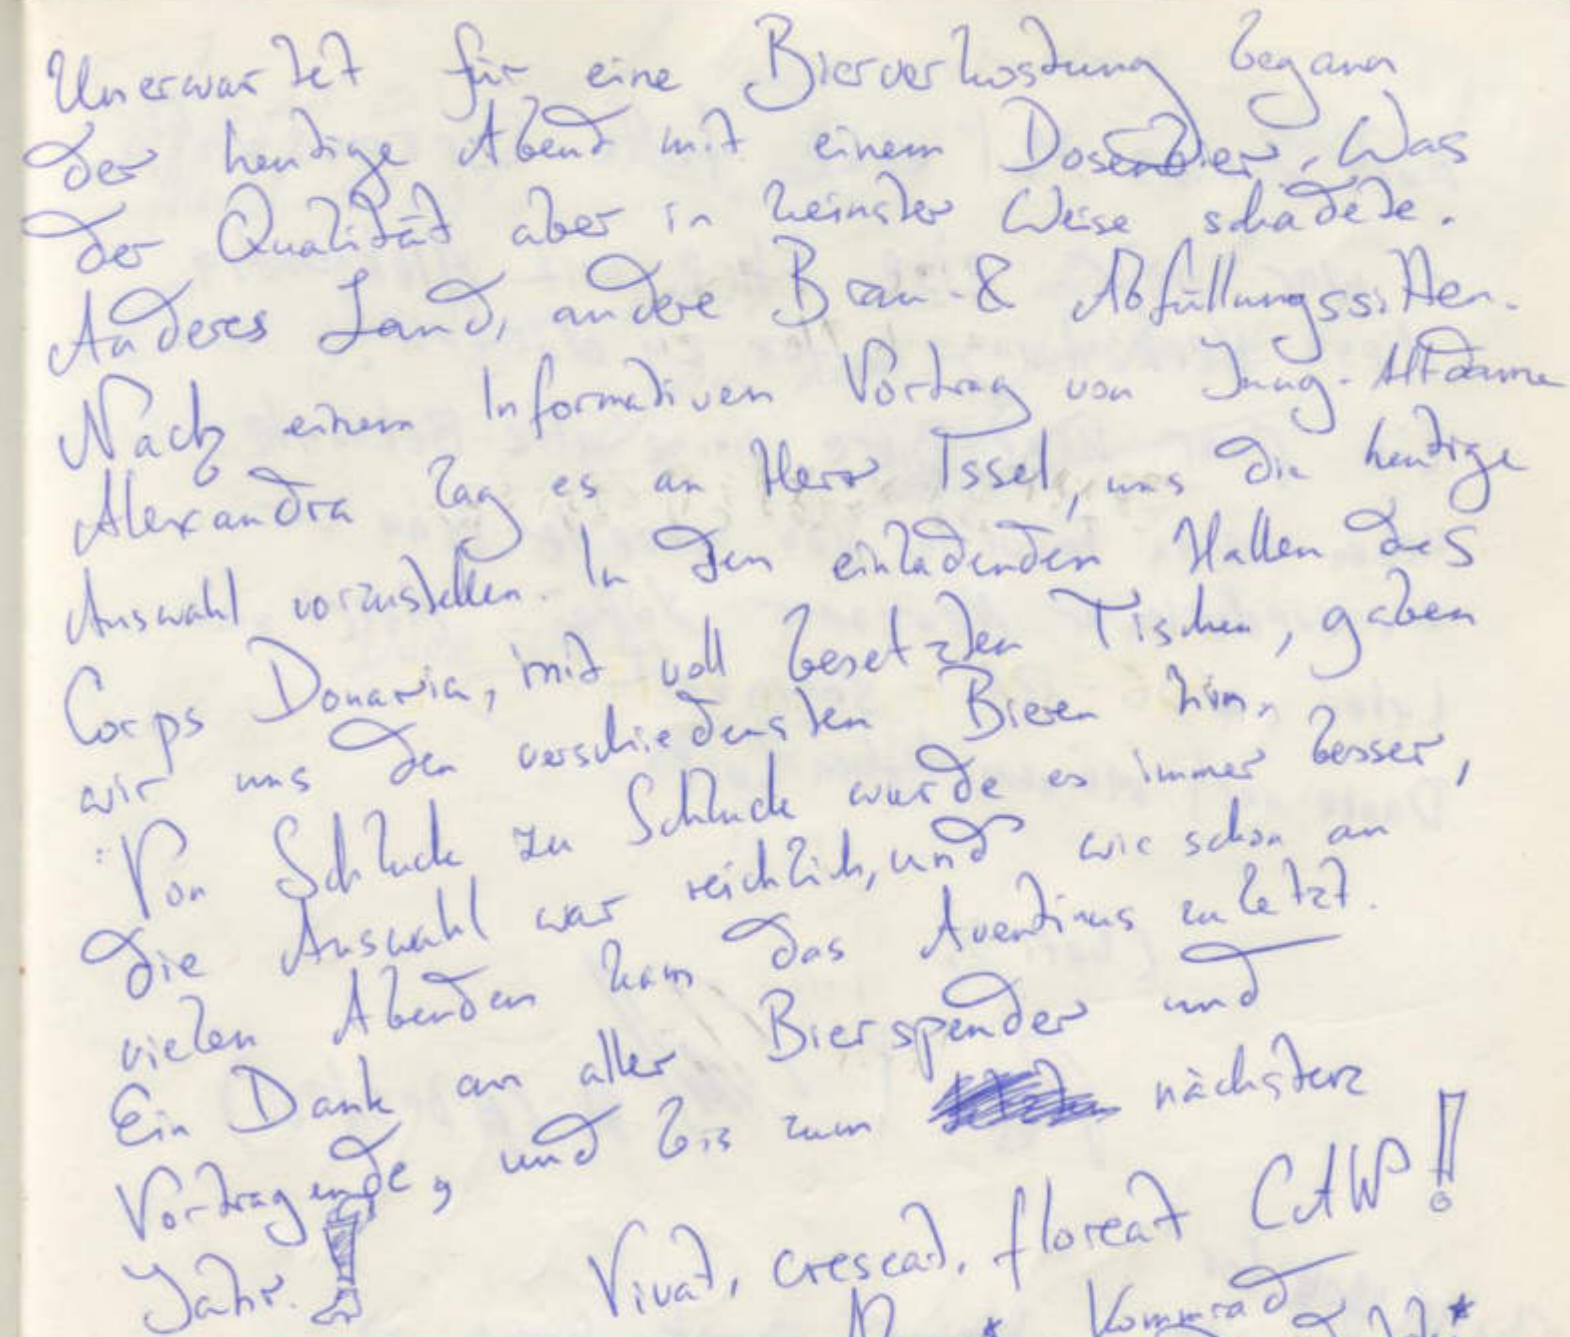 Unerwartet für eine Bierverkostung begann
der heutige Abend mit einem Dosenbier, Was
der Qualität aber in keinster Weise schadete.
Anderes Land, andere Brau- & Abfüllungssitten.
Nach einem Informativen Vortrag von Jung-Altdame
Alexandra lag es an Herr Issel, uns die heutige
Auswahl vorzustellen. In den einladenden Hallen des
Corps Donaria, mit voll besetzten Tischen, gaben
wir uns den verschiedensten Bieren hin.
Von Schluck zu Schluck wurde es immer besser,
die Auswahl war reichlich, und wie schon an
vielen Abenden kam das Aventinus zuletzt.
Ein Dank an aller Bierspender und
Vortragende, und bis zum nächsten
Jahr.
Vivat, crescat, floreat CAW!